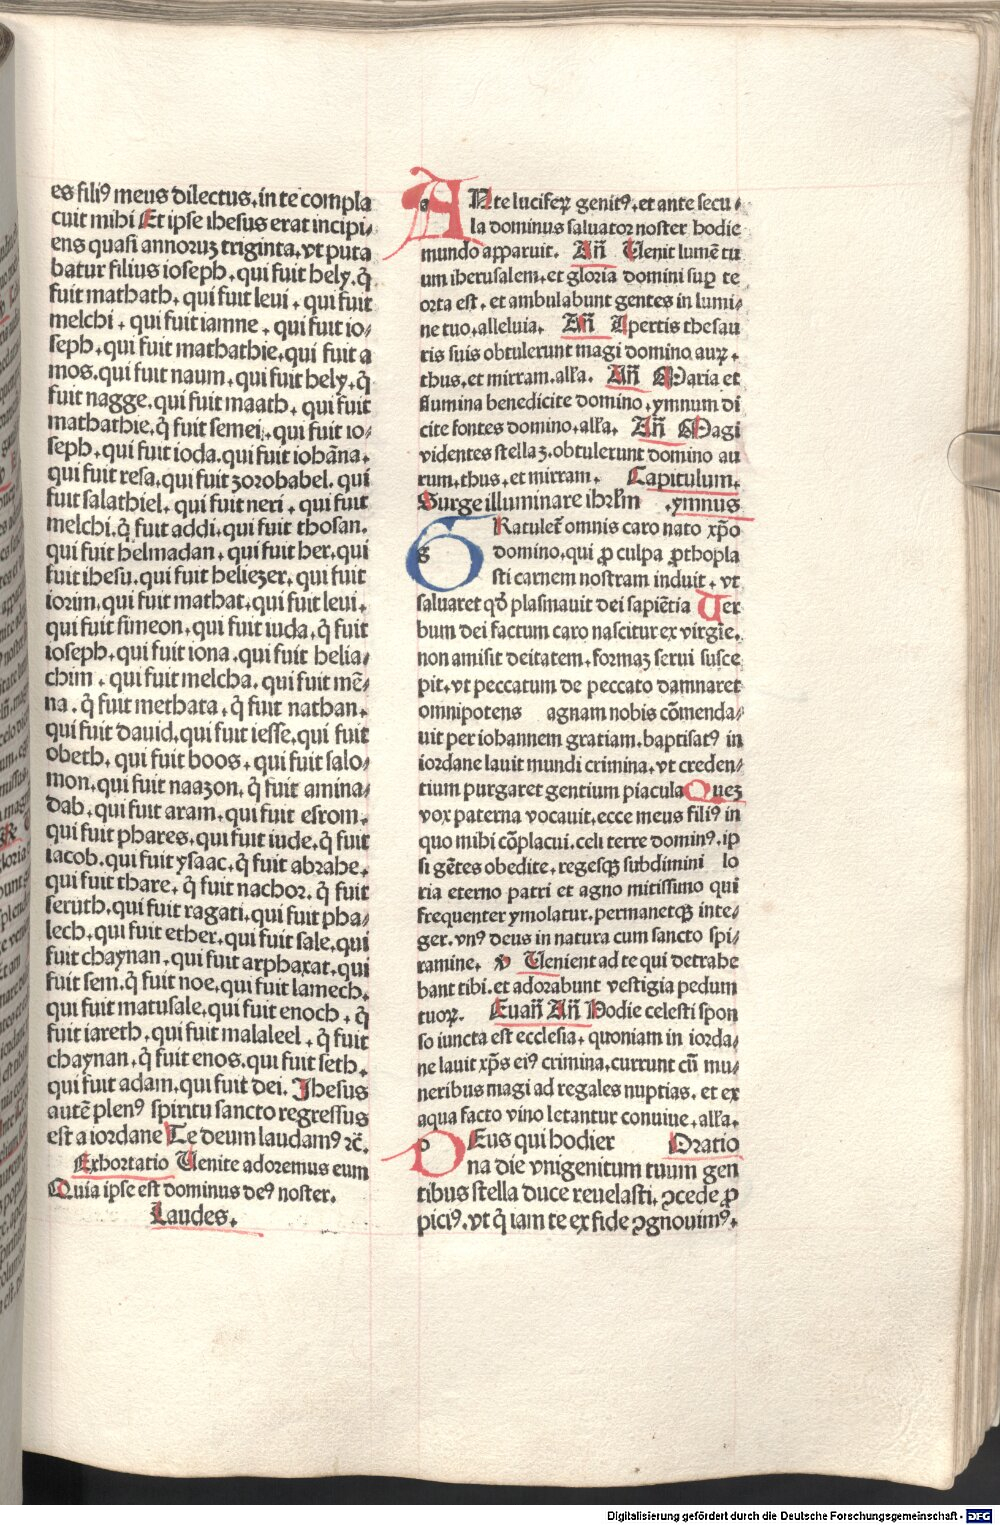 es filiꝰ meus dilectus. in te compla
cuit mihi Et ipse ihesus erat incipi⸗
ens quasi annoruꝫ triginta. vt puta
batur filius ioseph. qui fuit hely. q̄
fuit mathath. qui fuit leui. qui fuit
melchi. qui fuit iamne. qui fuit io⸗
seph. qui fuit mathathie. qui fuit a
mos. qui fuit naum. qui fuit hely. q̄
fuit nagge. qui fuit maath. qui fuit
mathathie. q̄ fuit semei. qui fuit io⸗
seph. qui fuit ioda. qui fuit iohāna.
qui fuit resa. qui fuit zorobabel. qui
fuit salathiel. qui fuit neri. qui fuit
melchi. q̄ fuit addi. qui fuit thosan.
qui fuit helmadan. qui fuit her. qui
fuit ihesu. qui fuit heliezer. qui fuit
iorim. qui fuit mathat. qui fuit leui.
qui fuit simeon. qui fuit iuda. q̄ fuit
ioseph. qui fuit iona. qui fuit helia⸗
chim. qui fuit melcha. qui fuit mē⸗
na. q̄ fuit methata. q̄ fuit nathan.
qui fuit dauid. qui fuit iesse. qui fuit
obeth. qui fuit boos. qui fuit salo⸗
mon. qui fuit naazon. q̄ fuit amina⸗
dab. qui fuit aram. qui fuit esrom.
qui fuit phares. qui fuit iude. q̄ fuit
iacob. qui fuit ysaac. q̄ fuit abrahe.
qui fuit thare. q̄ fuit nachor. q̄ fuit
seruth. qui fuit ragati. qui fuit pha⸗
lech. qui fuit ether. qui fuit sale. qui
fuit chaynan. qui fuit arphaxat. qui
fuit sem. q̄ fuit noe. qui fuit lamech.
qui fuit matusale. qui fuit enoch. q̄
fuit iareth. qui fuit malaleel. q̄ fuit
chaynan. q̄ fuit enos. qui fuit seth.
qui fuit adam. qui fuit dei. Ihesus
autē plenꝰ spiritu sancto regressus
est a iordane Te deum laudamꝰ ꝛc̄.
Exhortatio Uenite adoremus eum
Quia ipse est dominus deꝰ noster.
Laudes.
ANte luciferꝝ genitꝰ. et ante secu⸗
la dominus saluator noster hodie
mundo apparuit. Añ Uenit lumē tu
um iherusalem. et gloria domini suꝑ te
orta est. et ambulabunt gentes in lumi⸗
ne tuo. alleluia. Añ Apertis thesau
ris suis obtulerunt magi domino auꝝ.
thus. et mirram. alľa. Añ Maria et
flumina benedicite domino. ymnum di
cite fontes domino. alľa. Añ Magi
videntes stellaꝫ. obtulerunt domino au
rum. thus. et mirram. Capitulum.
Surge illuminare ihrľm .ymnus
GRatulet̄ omnis caro nato xp̄o
domino. qui ꝓ culpa ꝓthopla
sti carnem nostram induit. vt
saluaret qd̄ plasmauit dei sapiētia Uer
bum dei factum caro nascitur ex virgīe.
non amisit deitatem. formaꝫ serui susce
pit. vt peccatum de peccato damnaret
omnipotens agnam nobis cōmenda⸗
uit per iohannem gratiam. baptisatꝰ in
iordane lauit mundi crimina. vt creden⸗
tium purgaret gentium piacula Queꝫ
vox paterna vocauit. ecce meus filiꝰ in
quo mihi cōplacui. celi terre dominꝰ. ip
si gētes obedite. regesqꝫ subdimini lo
ria eterno patri et agno mitissimo qui
frequenter ymolatur. permanetqꝫ inte⸗
ger. vnꝰ deus in natura cum sancto spi⸗
ramine. ꝟ Uenient ad te qui detrahe
bant tibi. et adorabunt vestigia pedum
tuoꝝ. Euañ Añ Hodie celesti spon
so iuncta est ecclesia. quoniam in iorda⸗
ne lauit xp̄s eiꝰ crimina. currunt cū mu⸗
neribus magi ad regales nuptias. et ex
aqua facto vino letantur conuiue. alľa.
DEus qui hodier Oratio
na die vnigenitum tuum gen
tibus stella duce reuelasti. ꝯcede ꝓ
piciꝰ. vt q̄ iam te ex fide ꝯgnouimꝰ.
Digitalisierung gefördert durch die Deutsche Forschungsgemeinschaft - DFG